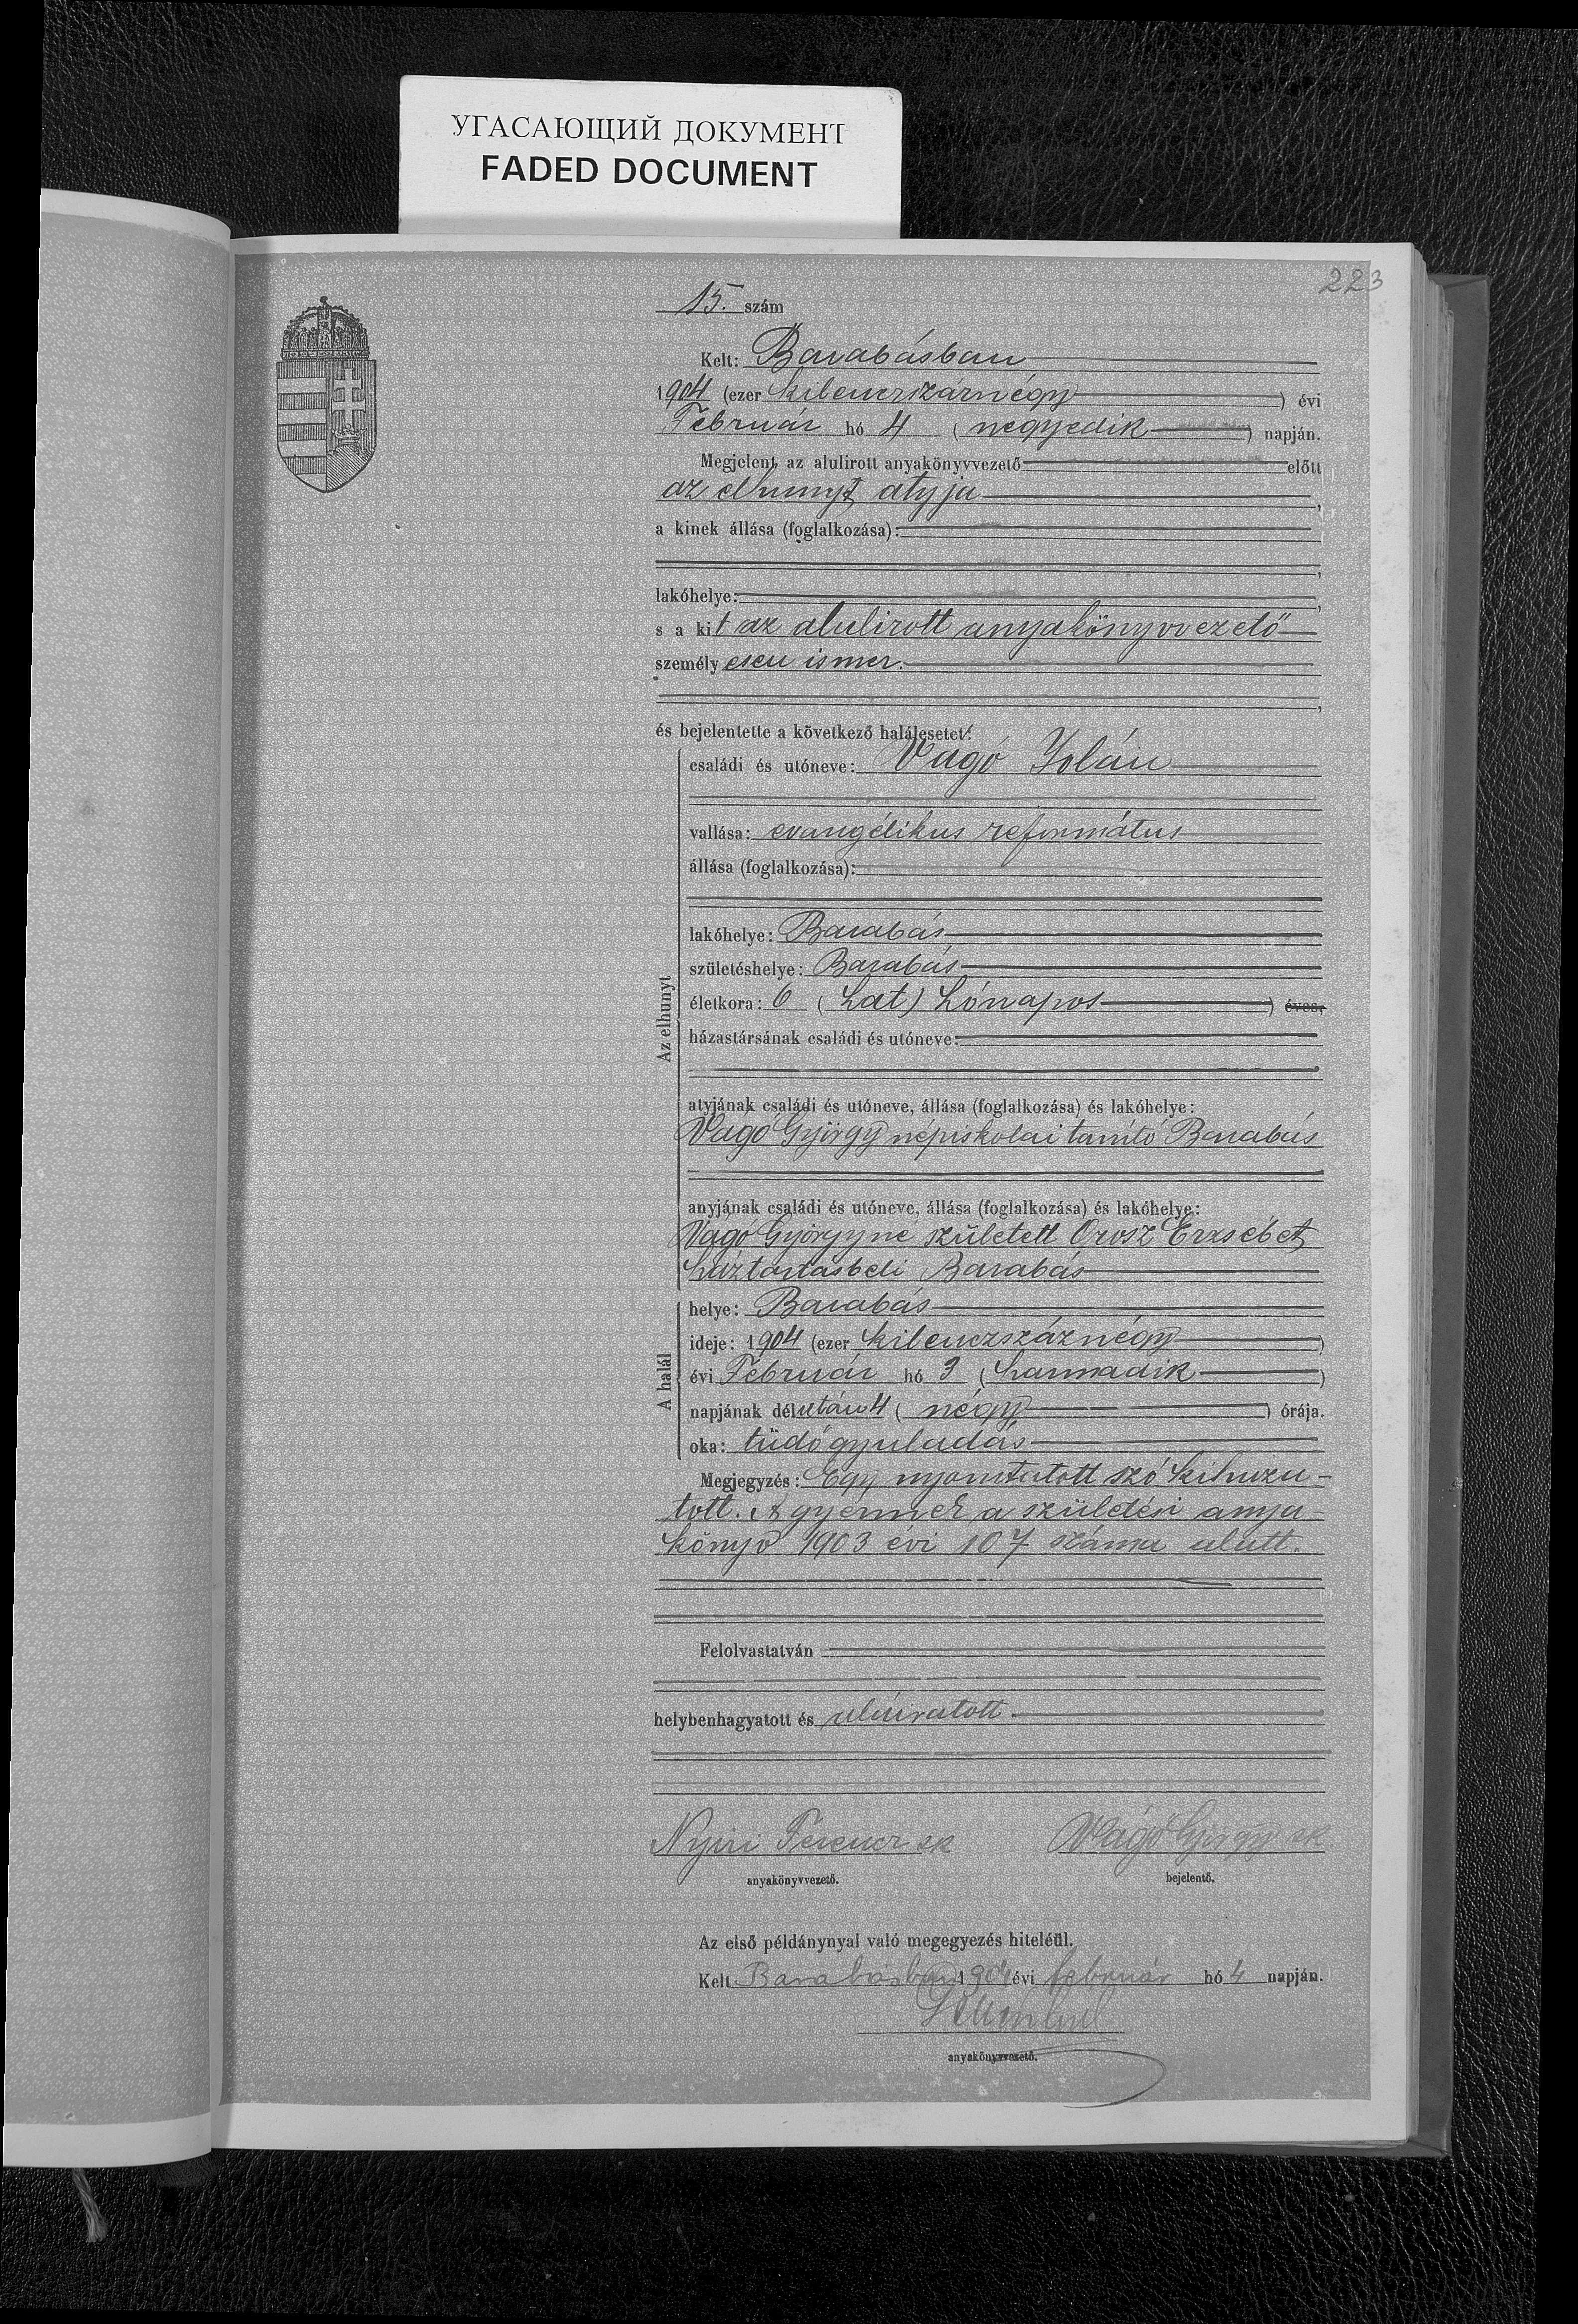 УГАСАЮЩИЙ ДОКУМЕНТ
FADED DOCUMENT
223
15. szám
Kelt: Barabásban
1904 (ezer kilenczszáznégy) évi
Február hó 4 (negyedik) napján.
Megjelent az alulirott anyakönyvvezető előtt
az elhunyt atyja,
a kinek állása (foglalkozása):
lakóhelye:
s a kit az alulirott anyakönyvvezető
személyesen ismer.
és bejelentette a következő halálesetet:
családi és utóneve: Vágó Jolán
vallása: evangélikus református
állása (foglalkozása):
lakóhelye: Barabás
születéshelye: Barabás
életkora: 6 (hat) hónapos) éves,
házastársának családi és utóneve:
Az elhunyt
atyjának családi és utóneve, állása (foglalkozása) és lakóhelye:
Vágó György népiskolai tanító Barabás
anyjának családi és utóneve, állása (foglalkozása) és lakóhelye:
Vágó Györgyné született Orosz Erzsébet
háztartásbeli Barabás
helye: Barabás
ideje: 1904 (ezer kilenczszáznégy)
évi Február hó 3 (harmadik)
A halál
napjának délután 4 (négy) órája.
oka: tüdőgyuladás
Megjegyzés: Egy nyomtatott szó kihuza-
tott. A gyermek a születési anya
könyv 1903 évi 107 száma alatt.
Felolvastatván
helybenhagyatott és aláiratott
Nyiri Ferencz sk
Vágó György sk
anyakönyvvezető.
bejelentő.
Az első példánynyal való megegyezés hiteléül.
Kelt Barabásban 1904 évi február hó 4 napján.
anyakönyvvezető.